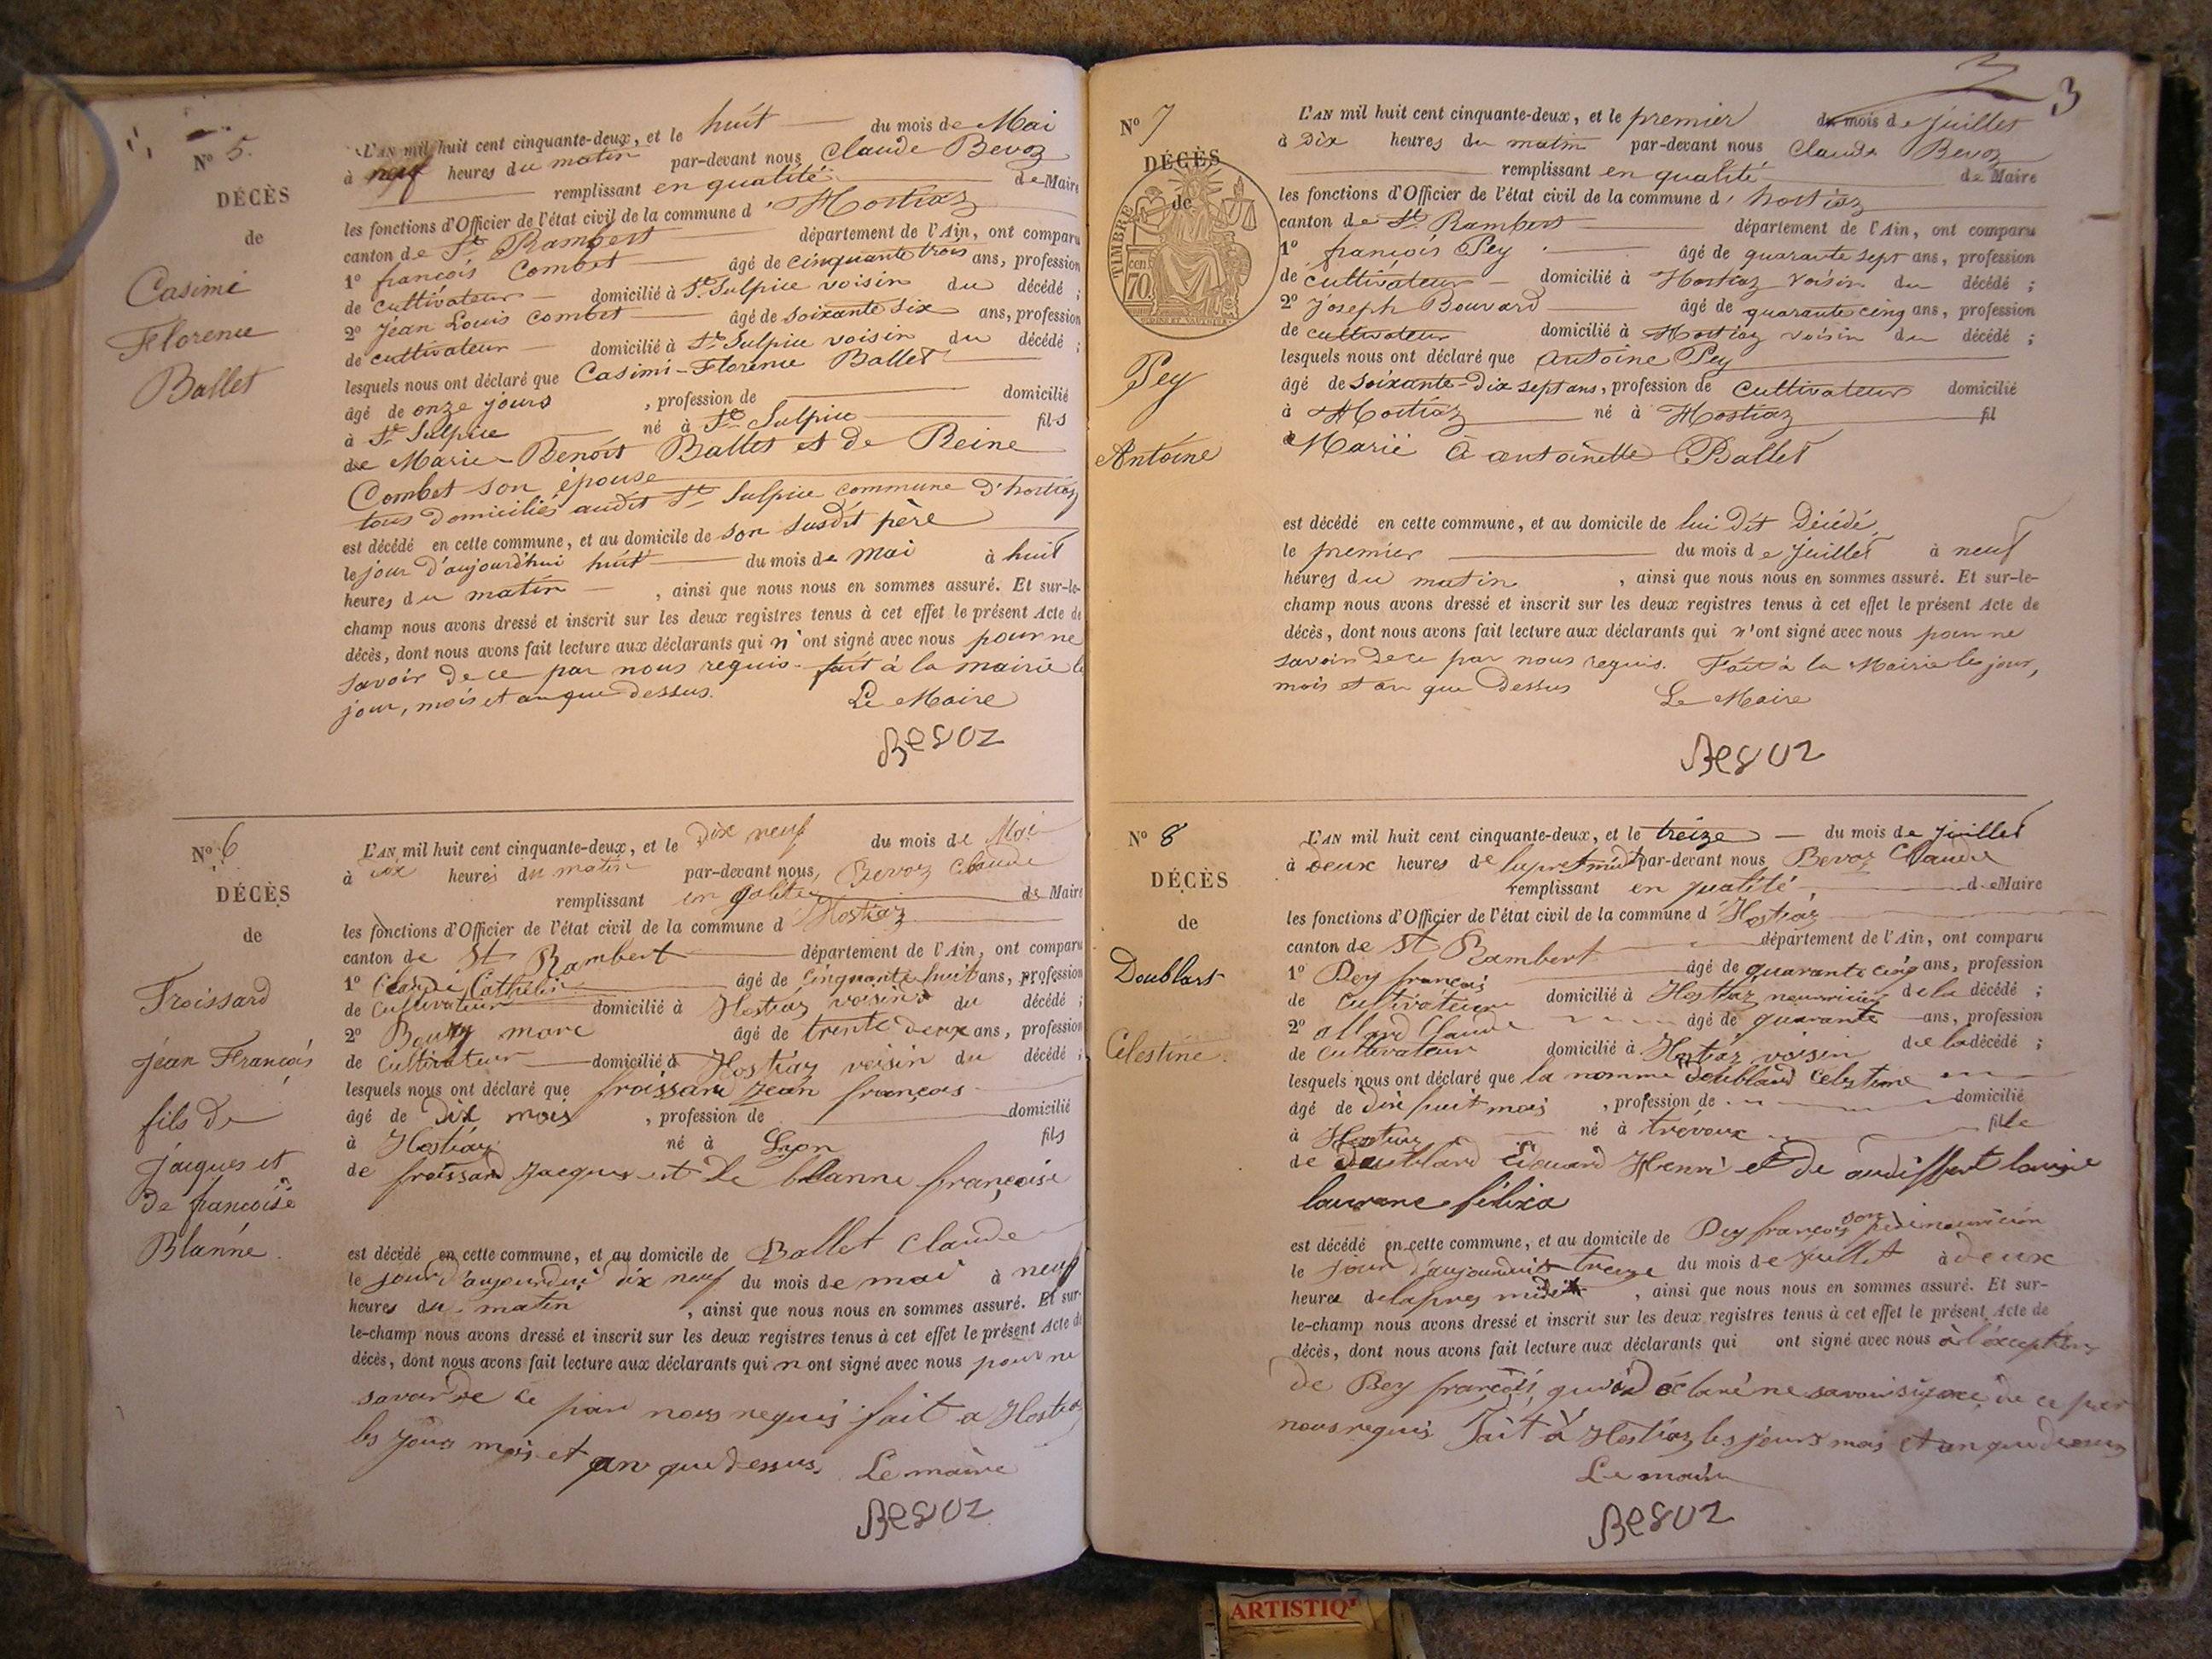 N° 5.
DÉCÈS
de
Casimi
Florence
Ballet
L'AN mil huit cent cinquante-deux, et le huit du mois de Mai
à neuf heures du matin par-devant nous Claude Bevoz
remplissant en qualité de Maire
les fonctions d'Officier de l'état civil de la commune d'Hostiaz
canton de St Rambert département de l'Ain, ont comparu
1° françois Combet âgé de cinquante trois ans, profession
de cultivateur domicilié à St Sulpice voisin du décédé ;
2° Jean Louis Combet âgé de soixante six ans, profession
de cultivateur domicilié à St Sulpice voisin du décédé ;
lesquels nous ont déclaré que Casimi-Florence Ballet
âgé de onze jours , profession de domicilié
à St Sulpice né à St Sulpice fils
de Marie-Benoit Ballet et de Reine
Combet son épouse
tous domiciliés audit St Sulpice commune d'hostiaz
est décédé en cette commune, et au domicile de son susdit père
le jour d'aujourd'hui huit du mois de mai à huit
heures du matin , ainsi que nous nous en sommes assuré. Et sur-le-
champ nous avons dressé et inscrit sur les deux registres tenus à cet effet le présent Acte de
décès, dont nous avons fait lecture aux déclarants qui n'ont signé avec nous pour ne
savoir de ce par nous requis. fait à la mairie le
jour, mois et an que dessus.
Le Maire
Bevoz
N° 6
DÉCÈS
de
Froissard
jean François
fils de
jacques et
de francoise
Blanne.
L'AN mil huit cent cinquante-deux, et le dix neuf du mois de Mai
à dix heures du matin par-devant nous, Bevoz Claude
remplissant en qalité de Maire
les fonctions d'Officier de l'état civil de la commune d Hostiaz
canton de St Rambert département de l'Ain, ont comparu
1° Claude Cathelin âgé de cinquante huit ans, profession
de Cultivateur domicilié à Hostiaz voisin du décédé ;
2° marc âgé de trente deux ans, profession
de Cultivateur domicilié à Hostiaz voisin du décédé ;
lesquels nous ont déclaré que froissard jean françois
âgé de dix mois , profession de domicilié
à Hostiaz né à Lyon fils
de froissard jacques et de blanne françoise
est décédé en cette commune, et au domicile de Ballet Claude
le jour d'aujourdui dix neuf du mois de mai à neuf
heures du matin , ainsi que nous nous en sommes assuré. Et sur-
le-champ nous avons dressé et inscrit sur les deux registres tenus à cet effet le présent Acte de
décès, dont nous avons fait lecture aux déclarants qui n ont signé avec nous pour ne
savoir de ce par nous requis fait a Hostiaz
les jours mois et an que dessus. Le maire
Bevoz
3
N° 7
DÉCÈS
de
TIMBRE
70
Pey
Antoine
L'AN mil huit cent cinquante-deux, et le premier du mois de juillet
à Dix heures du matin par-devant nous Claude Bevoz
remplissant en qualité de Maire
les fonctions d'Officier de l'état civil de la commune d'hostiaz
canton de St Rambert département de l'Ain, ont comparu
1° françois Pey âgé de quarante sept ans, profession
de cultivateur domicilié à Hostiaz voisin du décédé ;
2° Joseph Bouvard âgé de quarante cinq ans, profession
de cultivateur domicilié à Hostiaz voisin du décédé ;
lesquels nous ont déclaré que Antoine Pey
âgé de soixante-dix sept ans, profession de Cultivateur domicilié
à Hostiaz né à Hostiaz fil
Marié à antoinette Ballet
est décédé en cette commune, et au domicile de lui dit décédé
le premier du mois de juillet à neuf
heures du matin , ainsi que nous nous en sommes assuré. Et sur-le-
champ nous avons dressé et inscrit sur les deux registres tenus à cet effet le présent Acte de
décès, dont nous avons fait lecture aux déclarants qui n'ont signé avec nous pour ne
savoir de ce par nous requis. Fait à la Mairie les jour,
mois et an que Dessus Le Maire
Bevoz
N° 8
DÉCÈS
de
Doublars
Célestine.
L'AN mil huit cent cinquante-deux, et le treize du mois de juillet
à deux heures de par-devant nous Bevoz Claude
remplissant en qualité de Maire
les fonctions d'Officier de l'état civil de la commune d Hostiaz
canton de St Rambert département de l'Ain, ont comparu
1° Pey françois âgé de quarante cinq ans, profession
de Cultivateur domicilié à Hostiaz nourricier de la décédé ;
2° allard Claude âgé de quarante ans, profession
de Cultivateur domicilié à Hostiaz voisin de la décédé ;
lesquels nous ont déclaré que la nommé doublard Celestine
âgé de dix huit mois , profession de domicilié
à Hostiaz né à trévoux fille
de doublard Edouard Henri et de audiffert louise
laurence félixa
est décédé en cette commune, et au domicile de Pey françois son père nouricier
le jour d'aujourduit treize du mois de juillet à deux
heures delapres midi , ainsi que nous nous en sommes assuré. Et sur-
le-champ nous avons dressé et inscrit sur les deux registres tenus à cet effet le présent Acte de
décès, dont nous avons fait lecture aux déclarants qui ont signé avec nous à l'exception
de Pey françois, qui a déclaré ne savoir signer de ce par
nous requis fait à Hostiaz les jours mois et an que dessus
Le maire
Bevoz
ARTISTIQ